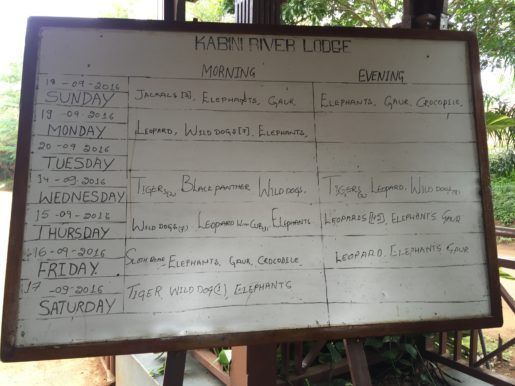 KABINI RIVER LODGE
MORNING EVENING
18-09-2016
SUNDAY JACKALS ELEPHANTS, GAUR ELEPHANTS, GAUR, CROCODILE,
19-09-2016
MONDAY LEOPARD, WILD DOGS ELEPHANTS,
20-09-2016
TUESDAY
14-09-2016
WEDNESDAY TIGERS BLACK PANTHER, WILD DOGS TIGERS LEOPARD, WILD DOGS
15-09-2016
THURSDAY WILD DOGS LEOPARD ELEPHANTS LEOPARDS ELEPHANTS GAUR
16-09-2016
FRIDAY SLOTH BEAR ELEPHANTS, GAUR, CROCODILE LEOPARD, ELEPHANTS GAUR
17-09-2016
SATURDAY TIGER WILD DOG ELEPHANTS